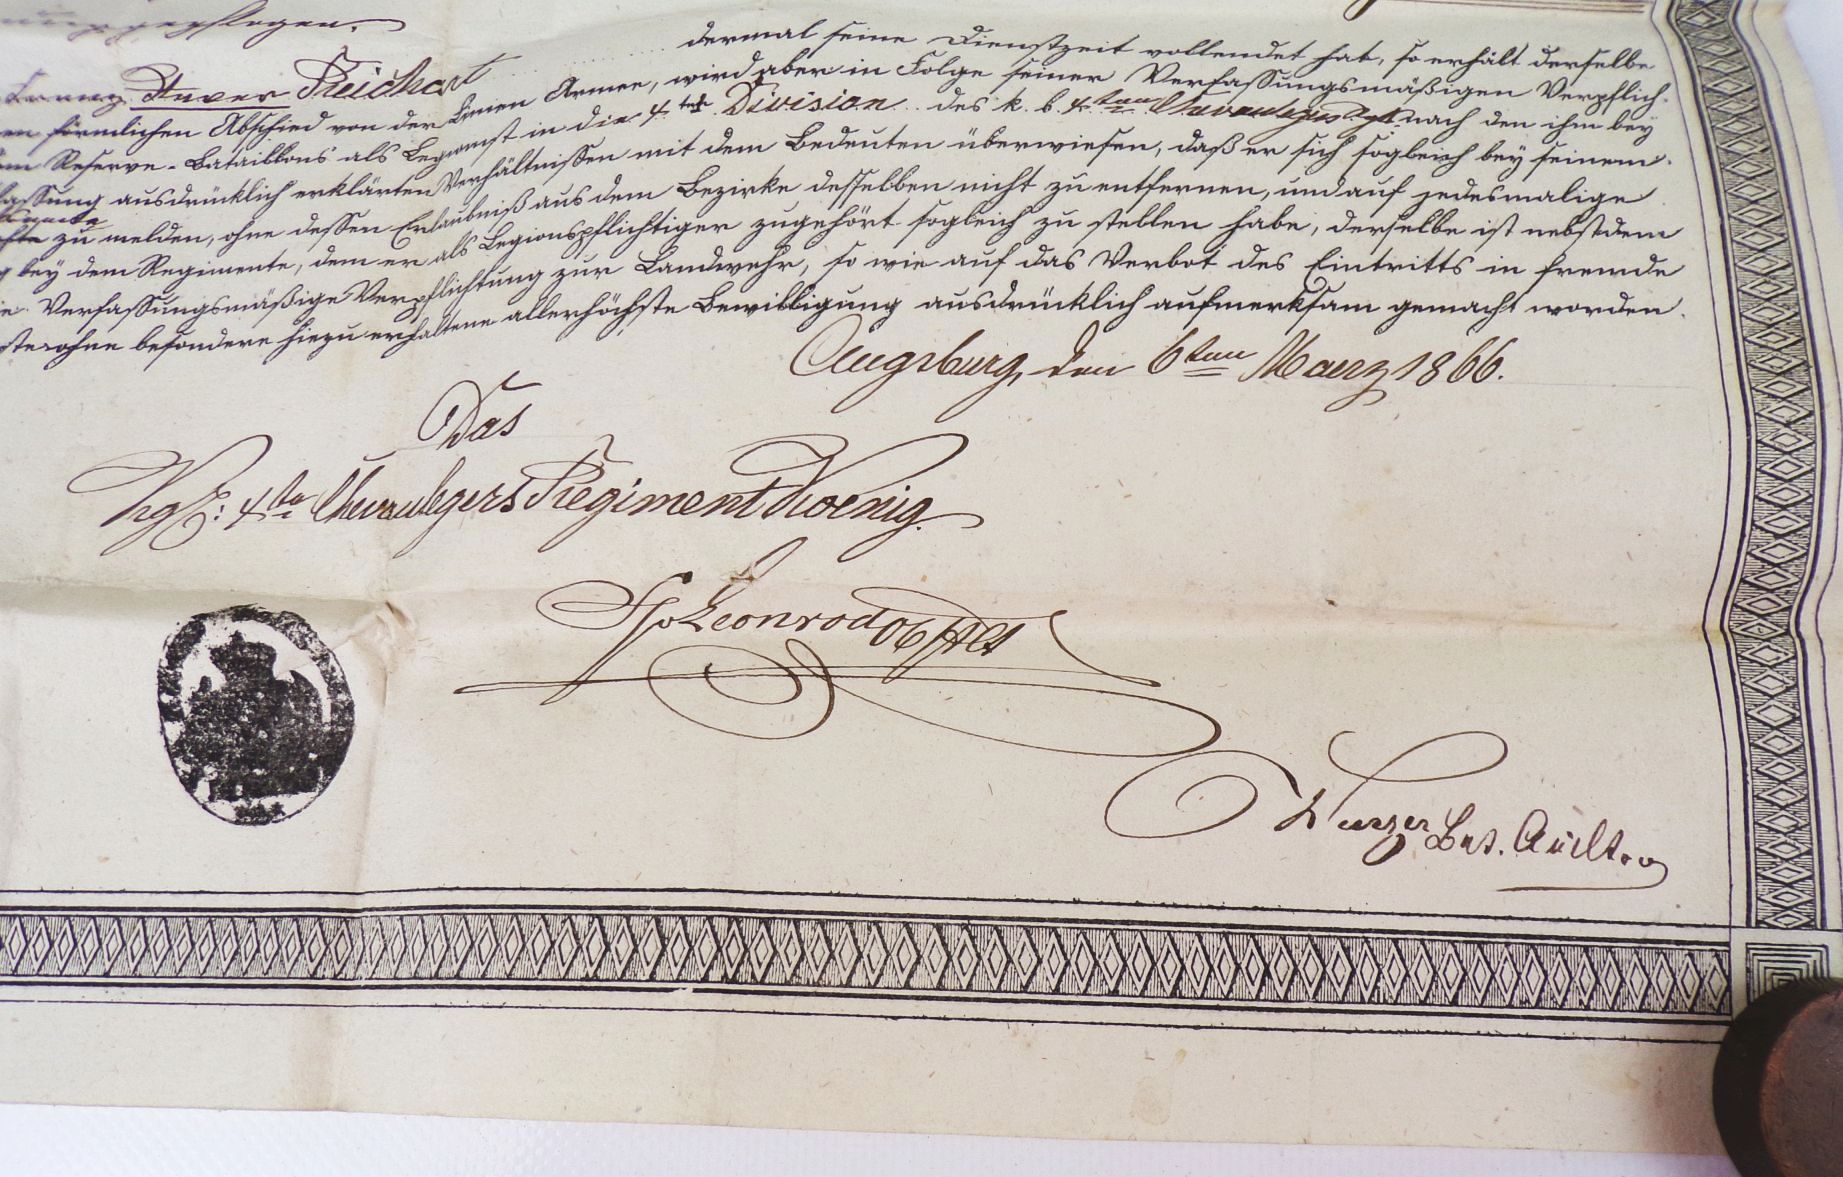 dermal seine Dienstzeit vollendet hat, so erhält derselbe
Xaver Reichart
en förmlichen Abschied von der Linien Armee, wird aber in Folge seiner Verfassungsmäßigen Verpflich-
Reserve-Bataillons als Legionist in die 4te Division des k. b. 4ten Chevaulegers Rgts nach den ihm bey
lassung ausdrücklich erklärten Verhältnissen mit dem Bedeuten überwiesen, daß er sich sogleich bey seinem
zu melden, ohne dessen Erlaubniß aus dem Bezirke desselben nicht zu entfernen, und auf jedesmalige
bey dem Regimente, dem er als Legionspflichtiger zugehört sogleich zu stellen habe, derselbe ist nebstdem
Verfassungsmäßige Verpflichtung zur Landwehr, so wie auf das Verbot des Eintritts in fremde
ohne besondere hiezu erhaltene allerhöchste Bewilligung ausdrücklich aufmerksam gemacht worden.
Augsburg, den 6ten Maerz 1866.
Das
4te Chevaulegers Regiment Koenig.
Leonrod
Audit.